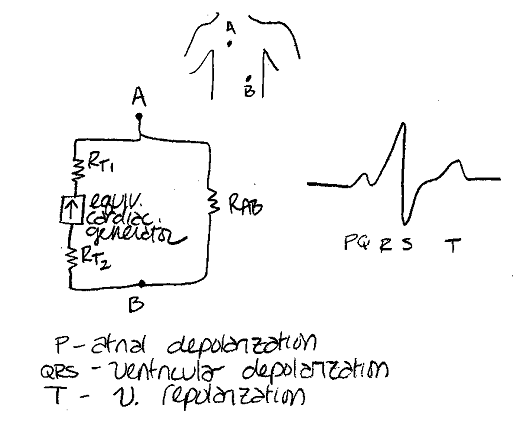 A
B
A
RT1
equiv.
cardiac
generator
RT2
RAB
B
PQ R S T
P - atrial depolarization
QRS - ventricular depolarization
T - v. repolarization